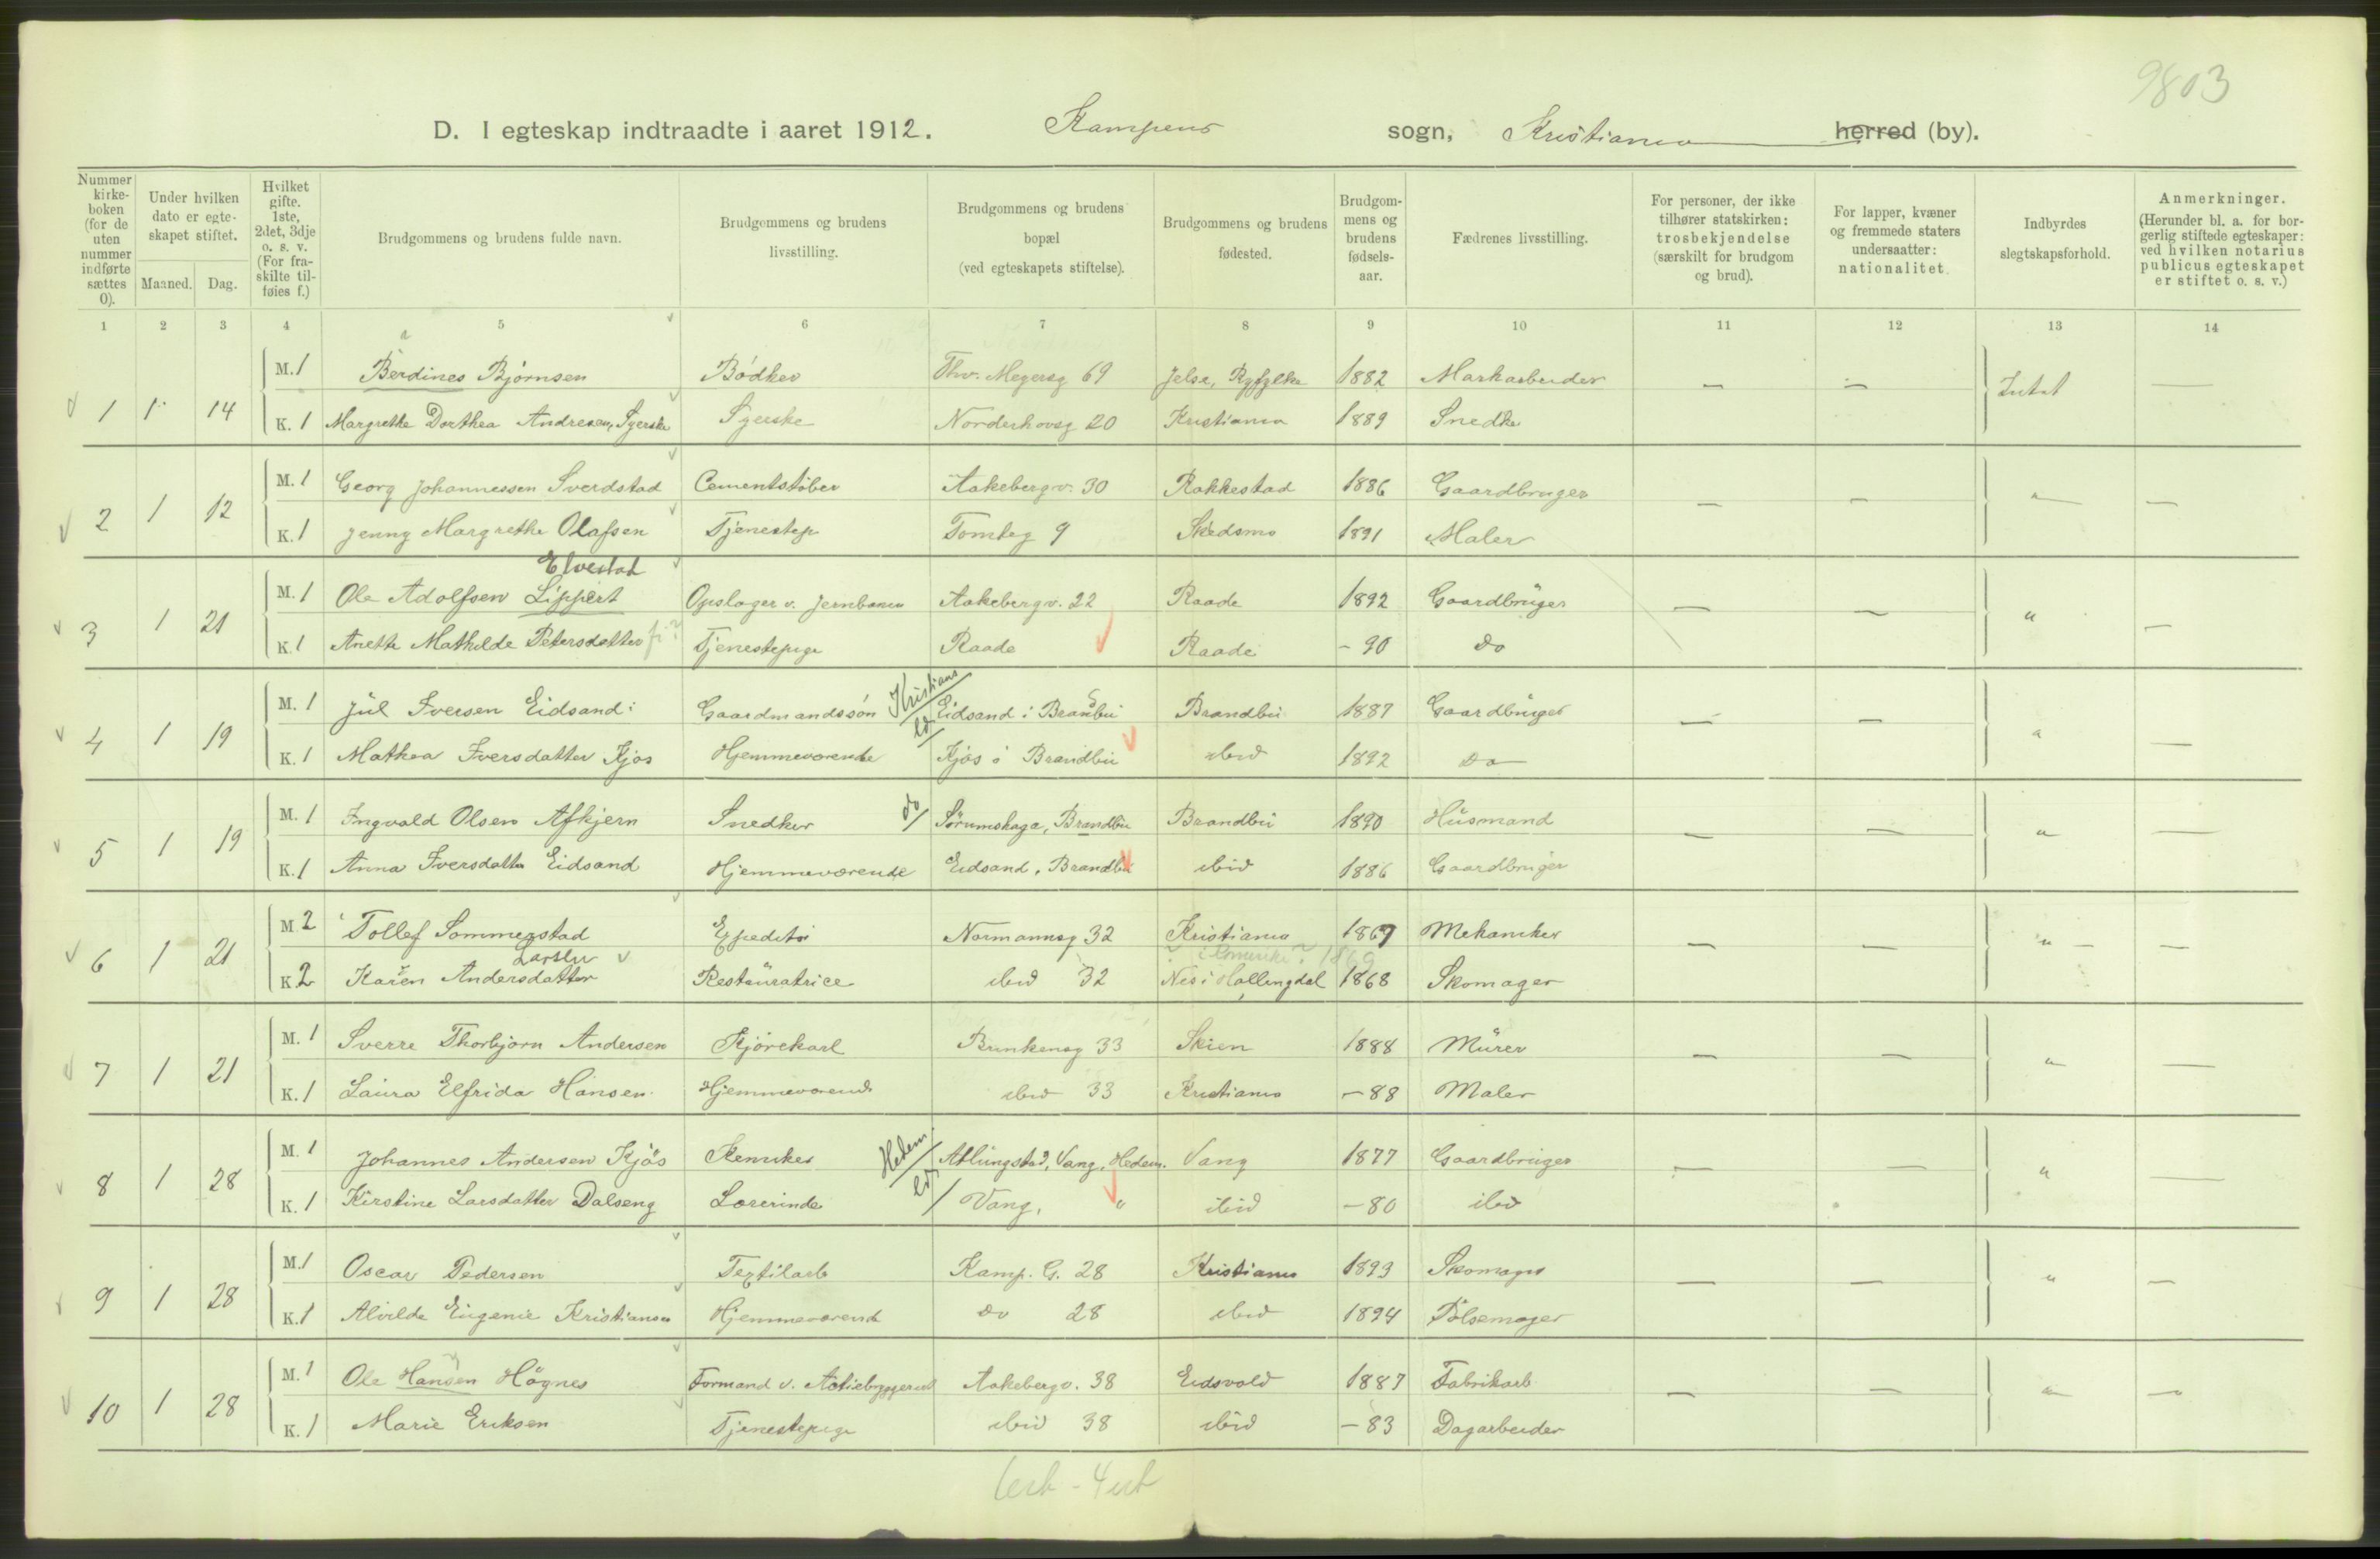 9803
D. I egteskap indtraadte i aaret 1912. Kampens sogn, Kristiania herred (by).
Nummer kirke-boken (for de uten nummer indførte sættes 0).
Under hvilken dato er egte-skapet stiftet.
Maaned. Dag.
Hvilket gifte. 1ste, 2det, 3dje o. s. v. (For fra-skilte til-føies f.)
Brudgommens og brudens fulde navn.
Brudgommens og brudens livsstilling.
Brudgommens og brudens bopæl (ved egteskapets stiftelse).
Brudgommens og brudens fødested.
Brudgom-mens og brudens fødsels-aar.
Fædrenes livsstilling.
For personer, der ikke tilhører statskirken: trosbekjendelse (særskilt for brudgom og brud).
For lapper, kvæner og fremmede staters undersaatter: nationalitet.
Indbyrdes slegtskapsforhold.
Anmerkninger. (Herunder bl. a. for bor-gerlig stiftede egteskaper: ved hvilken notarius publicus egteskapet er stiftet o. s. v.)
1 2 3 4 5 6 7 8 9 10 11 12 13 14
M. 1 Berdines Bjørnsen Bødker Thv. Meyersg 69 Jelse, Ryfylke 1882 Markarbeider — — Intet —
1 1 14 K. 1 Margrethe Dorthea Andresen, Syerske Syerske Norderhovsg 20 Kristiania 1889 Snedke
M. 1 Georg Johannessen Sverdstad Cementstøber Aakebergv. 30 Rakkestad 1886 Gaardbruger — — " —
2 1 12 K. 1 Jenny Margrethe Olafsen Tjenestep Tomteg 9 Skedsmo 1891 Maler
Elvestad
M. 1 Ole Adolfsen Lippert Opslager v. Jernbanen Aakebergv. 22 Raade 1892 Gaardbruger — — " —
3 1 21 K. 1 Anette Mathilde Petersdatter Tjenestepige Raade Raade – 90 Do
Kristians
M. 1 Jul Iversen Eidsand Gaardmandssøn Eidsand i Brandbu Brandbu 1887 Gaardbruger — — " —
4 1 19 K. 1 Mathea Iversdatter Kjøs Hjemmeværende Kjøs i Brandbu ibid 1892 Do
M. 1 Ingvald Olsen Afkjern Snedker do/ Sørumshaga, Brandbu Brandbu 1890 Husmand — — " —
5 1 19 K. 1 Anna Iversdatter Eidsand Hjemmeværende Eidsand, Brandbu ibid 1886 Gaardbruger
M. 2 Tollef Sommerstad Expeditør Normannsg 32 Kristiania 1867 Mekaniker — — " — —
Larsen 1869
6 1 21 K. 2 Karen Andersdatter Restauratrice ibid 32 Nes i Hallingdal 1868 Skomager
M. 1 Sverre Thorbjørn Andersen Kjørekarl Brinkensg 33 Skien 1888 Murer — — " —
7 1 21 K. 1 Laura Elfrida Hansen Hjemmeværende ibid 33 Kristiania – 88 Maler
Hedem.
M. 1 Johannes Andersen Kjøs Kemiker Atlungstad, Vang, Hedem. Vang 1877 Gaardbruger — — " —
8 1 28 K. 1 Kirstine Larsdatter Dalseng Lærerinde Vang, " ibid – 80 ibid
M. 1 Oscar Pedersen Textilarb Kamp. G. 28 Kristiania 1893 Skomager — — " —
9 1 28 K. 1 Alvilde Eugenie Kristiansen Hjemmeværende do 28 ibid 1894 Pølsemager
M. 1 Ole Hansen Høgnes Formand v. Aktiebryggeriet Aakebergv. 38 Eidsvold 1887 Fabrikarb — — " —
10 1 28 K. 1 Marie Eriksen Tjenestepige ibid 38 ibid – 83 Dagarbeider